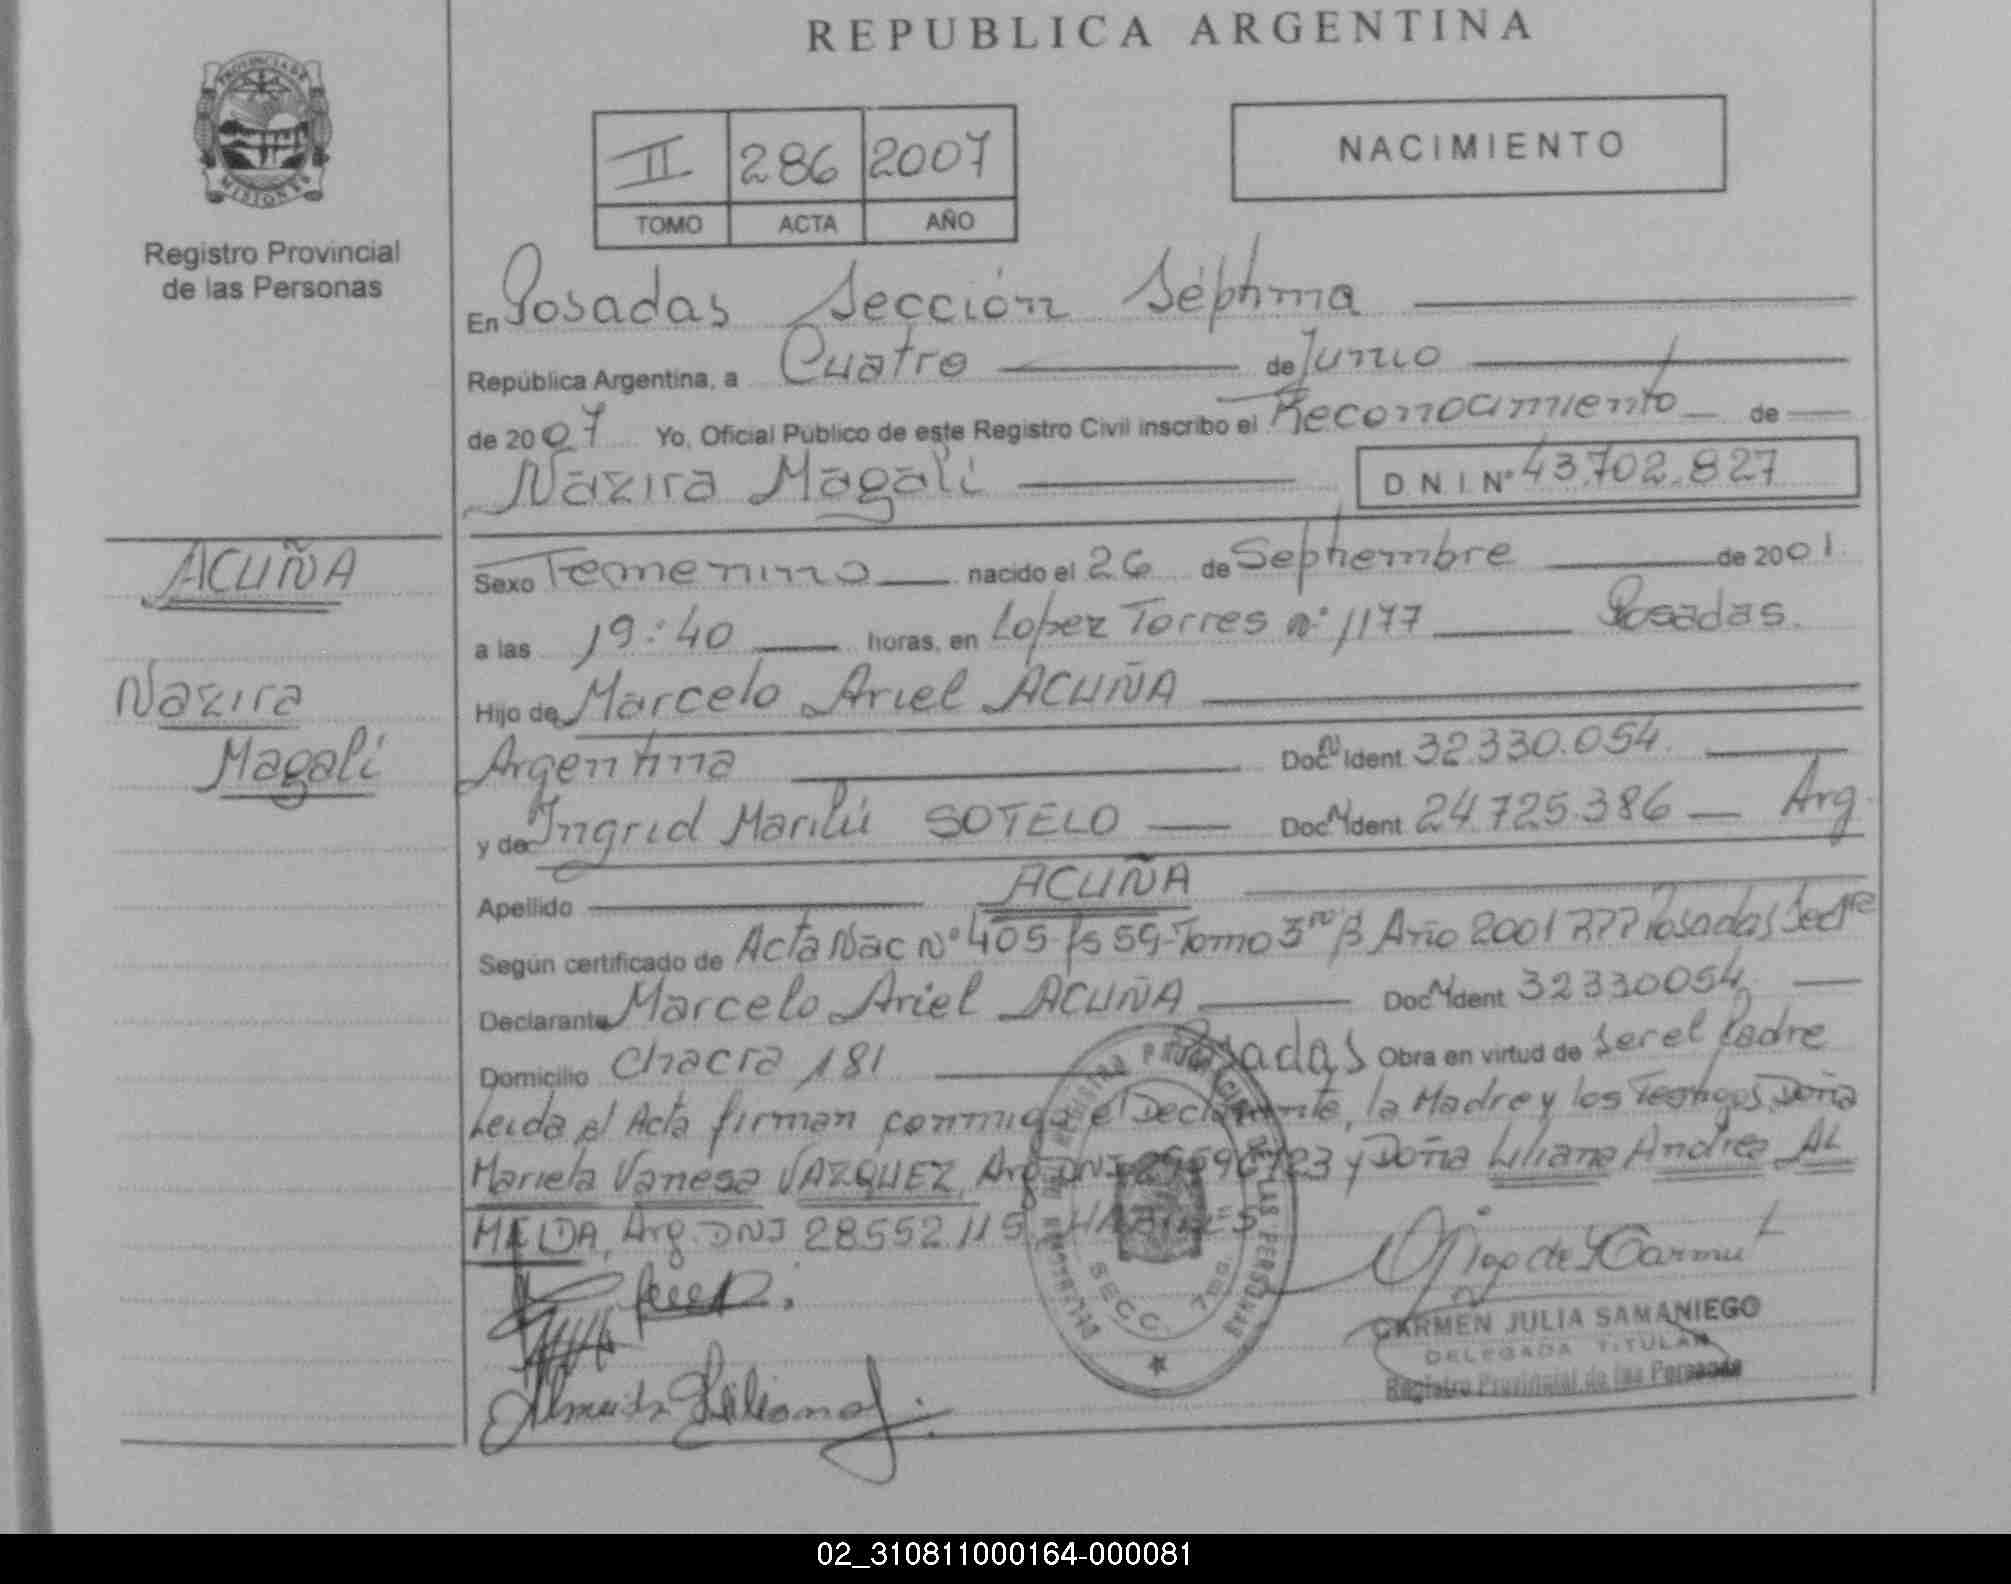 REPUBLICA ARGENTINA
PROVINCIA DE
MISIONES
Registro Provincial
de las Personas
II 286 2007
TOMO ACTA AÑO
NACIMIENTO
En Posadas Sección Séptima
República Argentina, a Cuatro de Junio
de 2007 Yo, Oficial Público de este Registro Civil inscribo el Reconocimiento de
Nazira Magali D.N.I. Nº 43.702.827
ACUÑA
Nazira
Magali
Sexo Femenino nacido el 26 de Septiembre de 2001.
a las 19:40 horas, en Lopez Torres nº 1177 Posadas.
Hijo de Marcelo Ariel ACUÑA
Argentina Doc N Ident 32.330.054.
y de Ingrid Marilú SOTELO Doc N Ident 24.725.386 Arg.
Apellido ACUÑA
Según certificado de Acta Nac Nº 405 fs 59-Tomo 3ro B Año 2001 Posadas Sec
Declarante Marcelo Ariel ACUÑA Doc N Ident 32330054
Domicilio Chacra 181 Posadas Obra en virtud de ser el Padre
Leida el Acta firman conmigo el Declarante, la Madre y los Testigos Doña
Mariela Vanesa VAZQUEZ, Arg DNI y Doña Liliana Andrea AL
MEIDA, Arg. DNI 28552.115 HABILES
SECC. 7
CARMEN JULIA SAMANIEGO
DELEGADA TITULAR
Registro Provincial de las Personas
Almeida Liliana
02_310811000164-000081